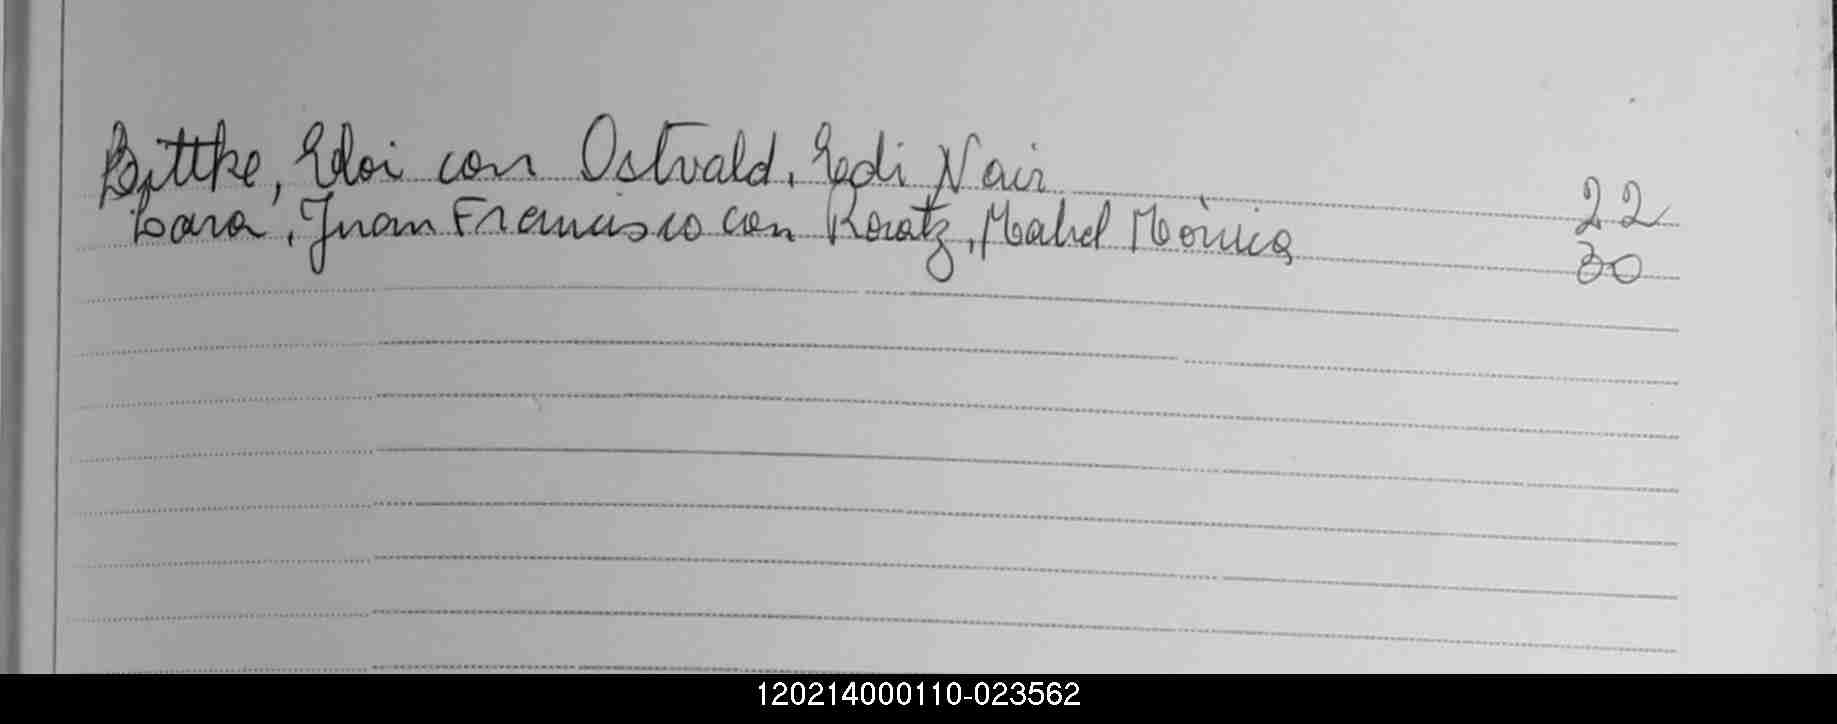 Bittke, Eloi con Ostvald, Ledi Nair 22
Lara, Juan Francisco con Koratz, Mabel Mónica 30
120214000110-023562